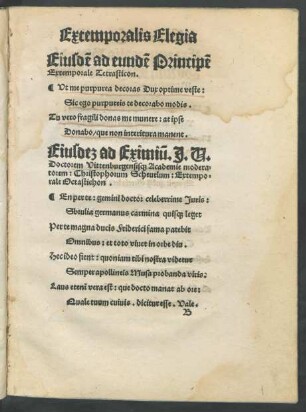 Extemporalis Elegia
Eiusdē ad eundē Principē
Extemporale Tetrasticon.
¶ Ut me purpurea decoras Dux optime veste:
Sic ego purpureis te decorabo modis.
Tu vero fragili donas me munere: at ipse
Donabo/que non interitura manent.
Eiusdez ad Eximiū. J. U.
Doctorem Vittenburgensisq̄ Academie modera-
torem: Christophorum Scheurlum: Extempo-
rali Octastichon.
¶ En per te: gemini doctor celeberrime Juris:
Sbrulia germanus carmina quisq̄ leget
Per te magna ducis Friderici fama patebit
Omnibus: et toto vivet in orbe diu.
Hec ideo fient: quoniam tibi nostra videtur
Semper apollineis Musa probanda viris:
Laus etenī vera est: que docto manat ab ore:
Quale tuum cuivis. dicitur esse. Vale.
B